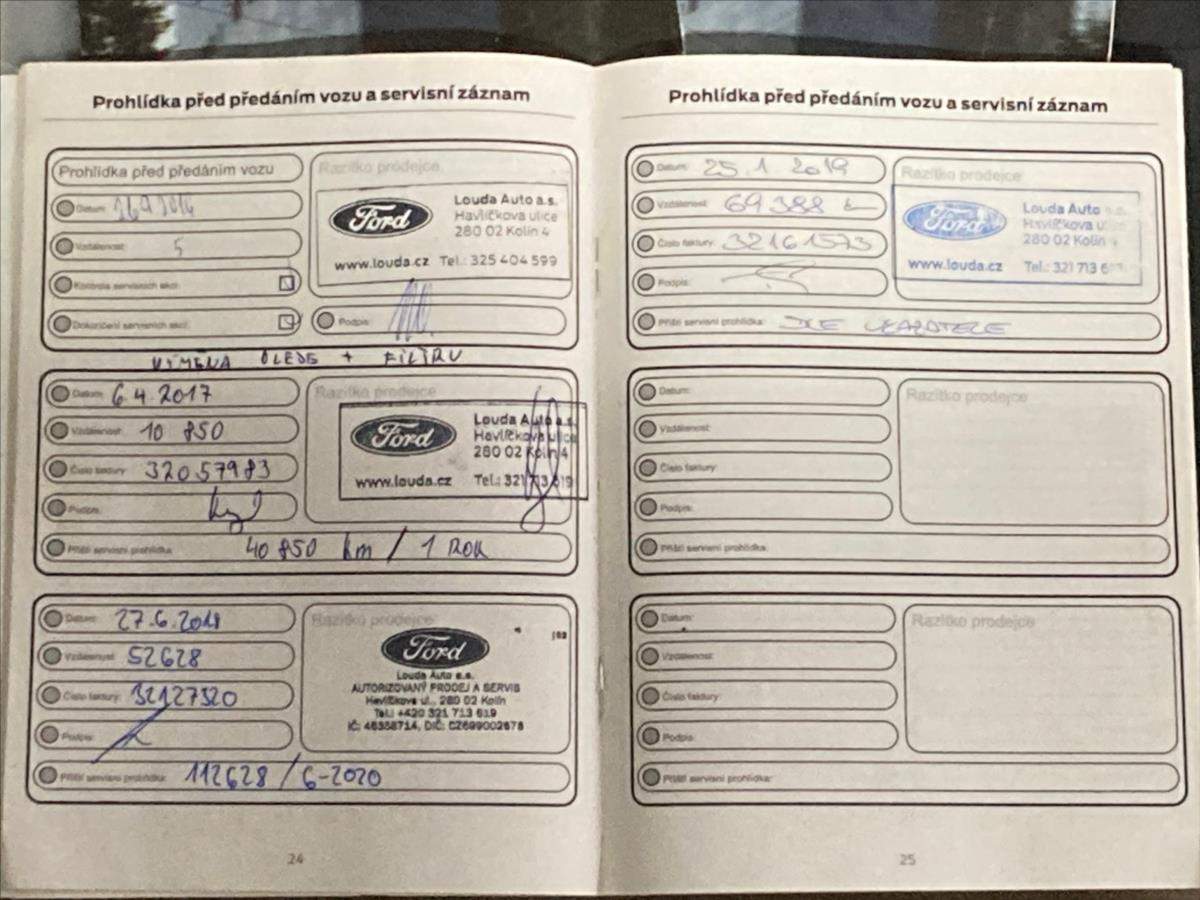 Prohlídka před předáním vozu a servisní záznam
Prohlídka před předáním vozu
Datum:
Vzdálenost: 5
Kontrola servisních akcí:
Dokončení servisních akcí:
Razítko prodejce
Ford
Louda Auto a.s.
Havlíčkova ulice
280 02 Kolín 4
www.louda.cz Tel.: 325 404 599
Podpis:
VÝMĚNA OLEJE + FILTRU
Datum: 6.4.2017
Vzdálenost: 10 850
Číslo faktury: 32057983
Podpis:
Razítko prodejce
Ford
Louda Auto a.s.
Havlíčkova ulice
280 02 Kolín 4
www.louda.cz Tel.: 321 713 619
Příští servisní prohlídka: 40 850 km / 1 ROK
Datum: 27.6.2018
Vzdálenost: 52628
Číslo faktury: 32127520
Podpis:
Razítko prodejce
Ford
Louda Auto a.s.
AUTORIZOVANÝ PRODEJ A SERVIS
Havlíčkova ul., 280 02 Kolín
Tel.: +420 321 713 619
IČ: 46358714, DIČ: CZ699002678
Příští servisní prohlídka: 112628 / 6-2020
24
Prohlídka před předáním vozu a servisní záznam
Datum: 25.1.2019
Vzdálenost: 69388
Číslo faktury: 32161573
Podpis:
Razítko prodejce
Ford
Louda Auto a.s.
Havlíčkova
280 02 Kolín 4
www.louda.cz Tel.: 321 713
Příští servisní prohlídka: DLE UKAZATELE
Datum:
Vzdálenost:
Číslo faktury:
Podpis:
Razítko prodejce
Příští servisní prohlídka:
Datum:
Vzdálenost:
Číslo faktury:
Podpis:
Razítko prodejce
Příští servisní prohlídka:
25